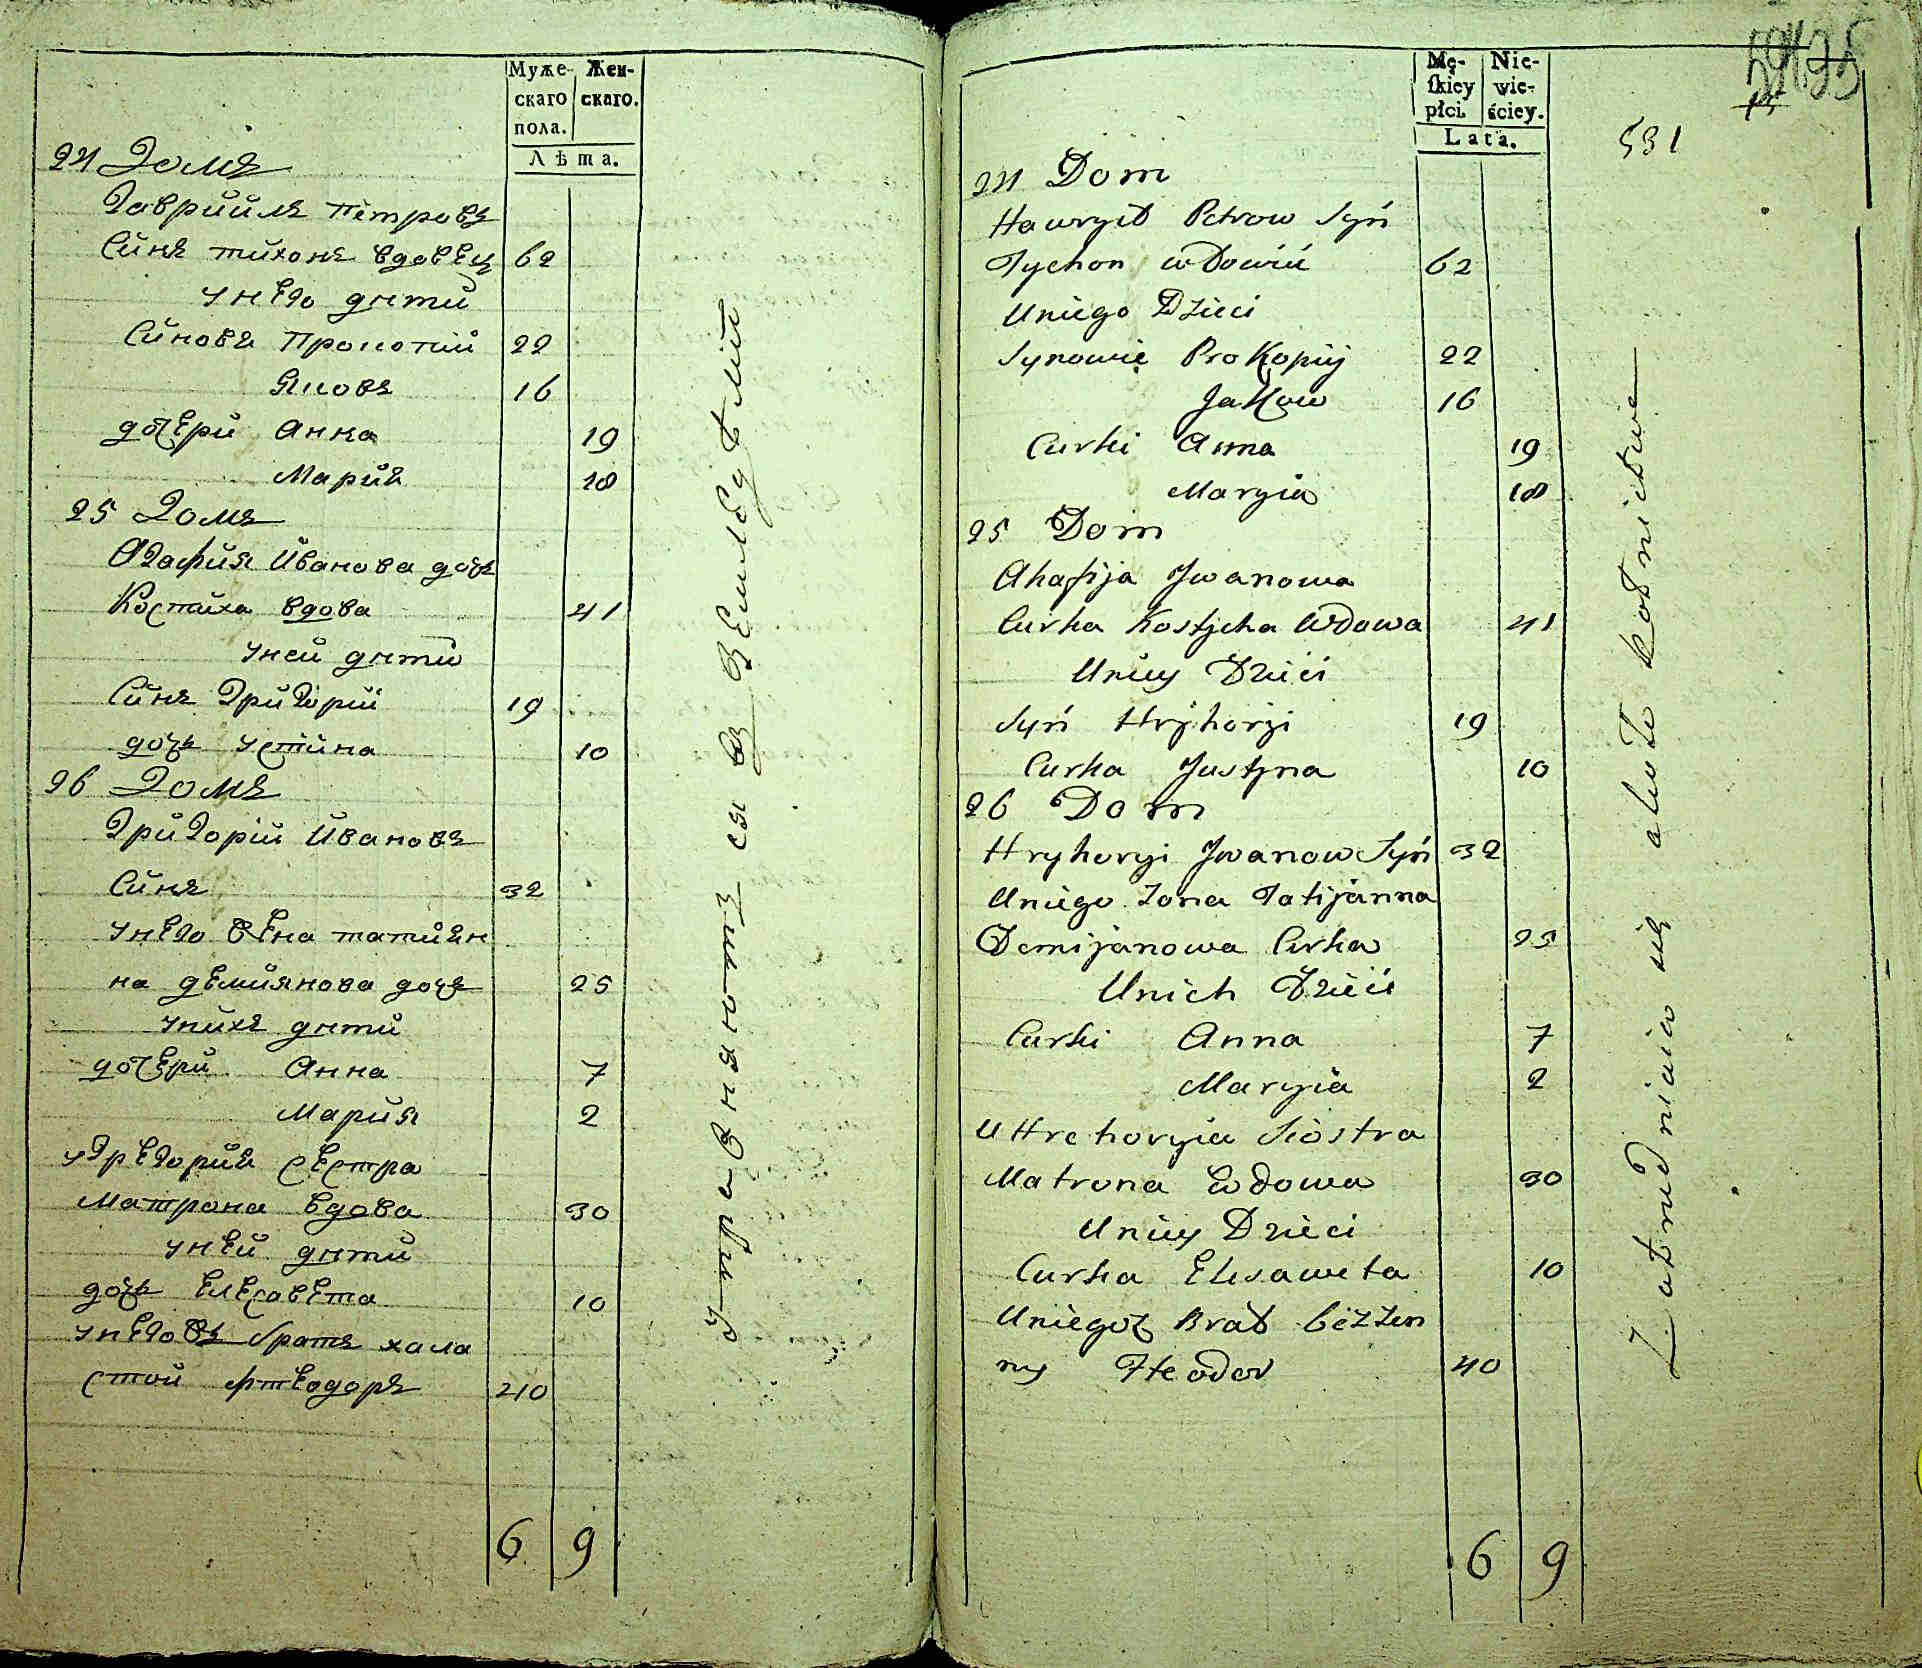 Муже-
скаго
пола.
Жен-
скаго.
Лѣта.
24 Домъ
Гаврийлъ Петровъ
Сйнъ тихонъ вдовец 62
унего дѣти
Сйновъ Прокопий 22
Яковъ 16
дочери Анна 19
Марий 18
25 Домъ
Агафия Иванова дочь
Костиха вдова 41
уней дѣти
Сйнъ Григорий 19
дочь устина 10
26 Домъ
Григорій Ивановъ
Сйнъ 32
унего жена татиян
на демиянова дочь 25
унихъ дѣти
дочери Анна 7
Мария 2
уГрегория сестра
матрона вдова 30
уней дѣти
дочь Елесавета 10
унегожъ братъ хала
стой фтеодоръ 40
6 9
упражняютъ ся въ Земледѣлій
Mę-
skiey
płci.
Nie-
wie-
ściey.
Lata.
531
24 Dom
Hawryił Petrow Syń
Tychon wdowiń 62
Uniego Dzieci
Synowie Prokopiy 22
Jakow 16
Curki Anna 19
Maryia 18
25 Dom
Ahafija Jwanowa
Curka Kostycha Wdowa 41
Uniey Dzieci
Syń Hryhoryi 19
Curka Justyna 10
26 Dom
Hryhoryi Jwanow Syń 32
Uniego Zona Tatijanna
Demijanowa Curka 25
Unich Dzieci
Curki Anna 7
Maryia 2
U Hrehoryia Siostra
Matrona Wdowa 30
Uniey Dzieci
Curka Elisaweta 10
Uniegoż Brat beżżen
ny Fteodor 40
6 9
Zatrudniaia się około Rolnictwa